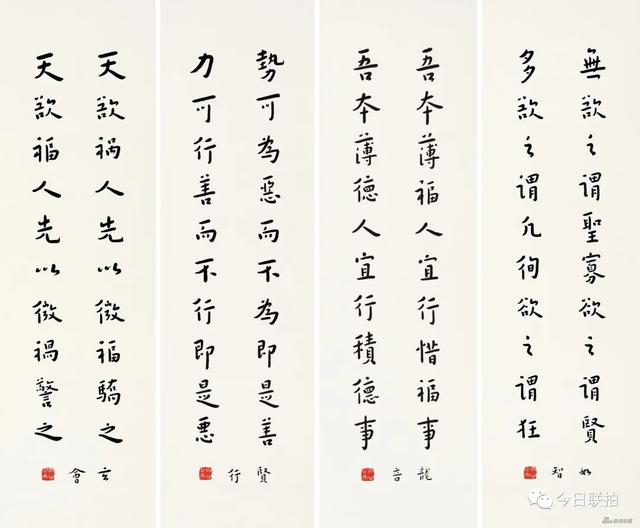 無欲之謂聖寡欲之謂賢
多欲之謂凡徇欲之謂狂
如智
吾本薄福人宜行惜福事
吾本薄德人宜行積德事
龍音
勢可為惡而不為即是善
力可行善而不行即是惡
賢行
天欲禍人先以微福驕之
天欲福人先以微禍警之
玄會
今日联拍